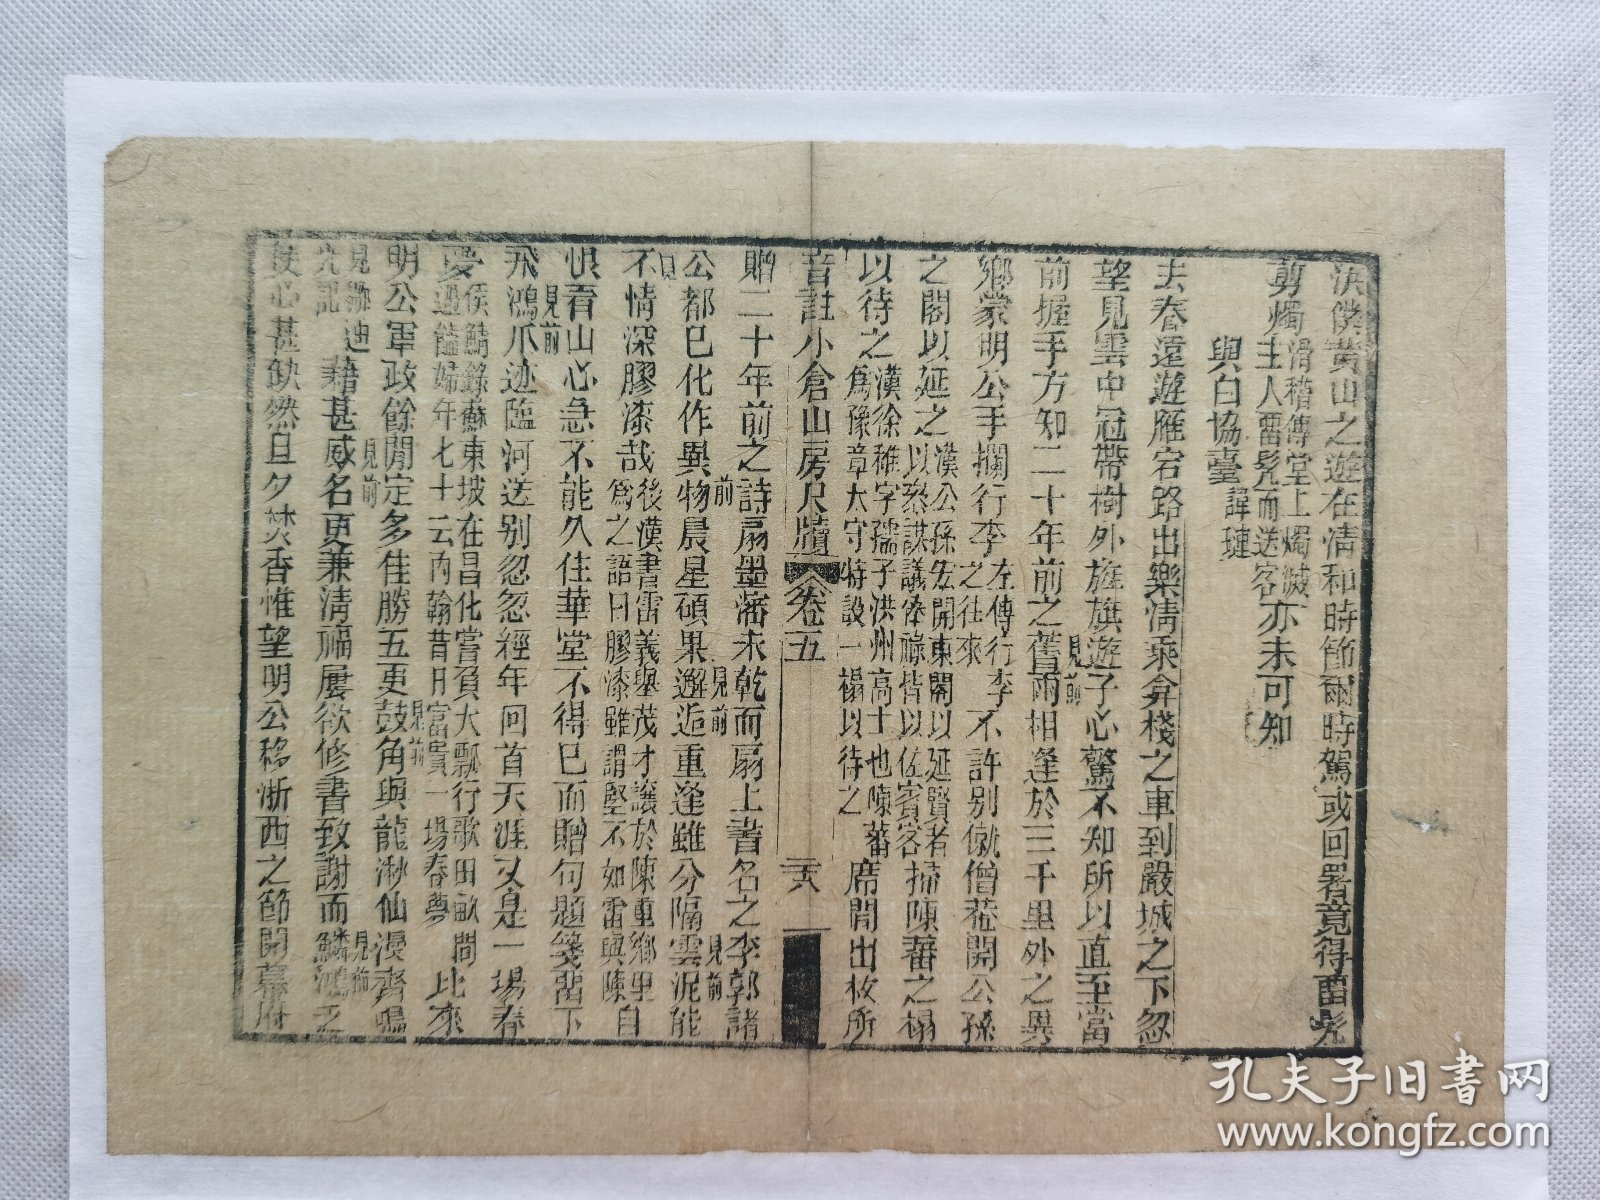 洪僕黃山之遊在清和時節爾時駕或回署竟得畱髡
剪燭滑稽傳堂上燭滅主人畱髡而送客亦未可知
與白協臺諱璉
去春遠遊雁宕路出樂清乘弇棧之車到嚴城之下忽
望見雲中冠帶樹外旌旗遊子心驚不知所以直至當
前握手方知二十年前之舊雨見前相逢於三千里外之異
鄉蒙明公手攔行李左傳行李之往來不許別僦僧菴開公孫
之閣以延之漢公孫宏開東閣以延賢者以參謀議俸祿皆以佐賓客掃陳蕃之榻
以待之漢徐稚字孺子洪州高士也陳蕃為豫章太守特設一榻以待之席間出枚所
音註小倉山房尺牘 卷五 六
贈二十年前之詩扇墨瀋未乾而扇上書名之李郭諸
公都已化作異物晨星碩果邂逅重逢雖分隔雲泥能
不情深膠漆哉後漢書雷義舉茂才讓於陳重鄉里為之語曰膠漆雖謂堅不如雷與陳自
恨看山心急不能久住華堂不得已而贈句題箋畱下
飛鴻爪迹臨河送別忽忽經年回首天涯又是一場春
夢侯鯖錄蘇東坡在昌化嘗負大瓢行歌田畝間遇饁婦年七十云內翰昔日富貴一場春夢比來
明公軍政餘閒定多佳勝五更鼓角與龍湫仙瀑齊鳴
藉甚威名更兼清福屢欲修書致謝而鱗鴻乏
便心甚缺然旦夕焚香惟望明公移浙西之節開幕府
孔夫子旧書网
www.kongfz.com